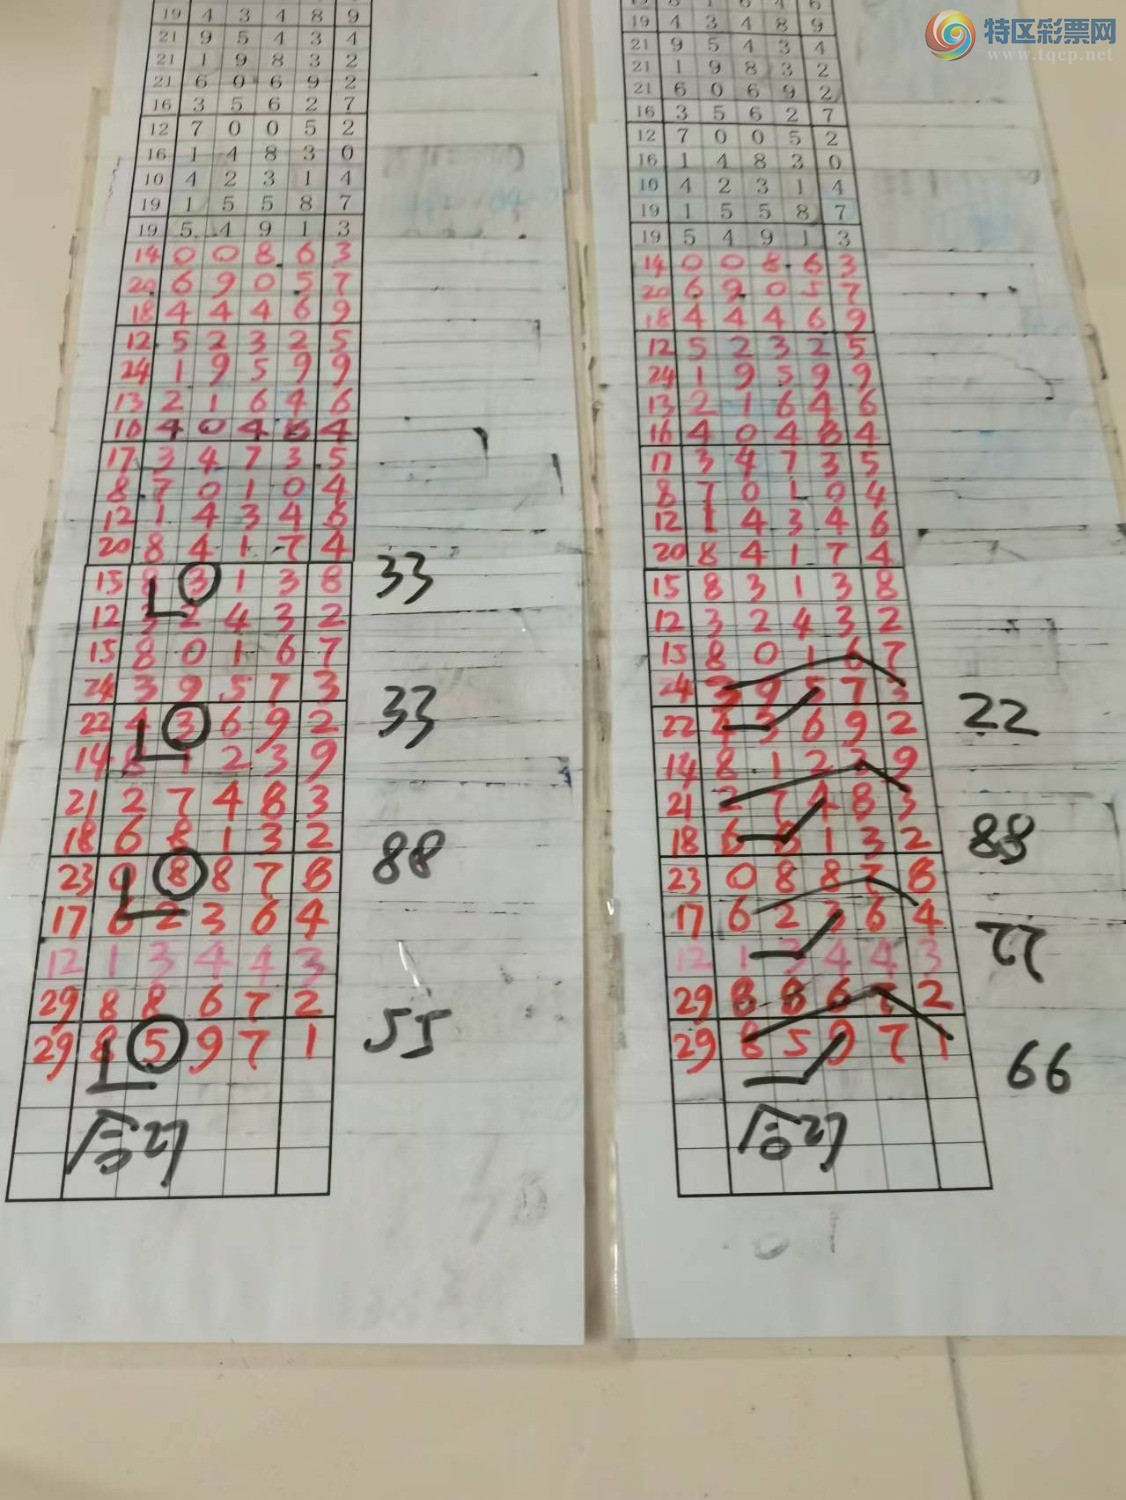 特区彩票网
www.tqcp.net
19 4 3 4 8 9
21 9 5 4 3 4
21 1 9 8 3 2
21 6 0 6 9 2
16 3 5 6 2 7
12 7 0 0 5 2
16 1 4 8 3 0
10 4 2 3 1 4
19 1 5 5 8 7
19 5 4 9 1 3
14 0 0 8 6 3
20 6 9 0 5 7
18 4 4 4 6 9
12 5 2 3 2 5
24 1 9 5 9 9
13 2 1 6 4 6
16 4 0 4 8 4
17 3 4 7 3 5
8 7 0 1 0 4
12 1 4 3 4 6
20 8 4 1 7 4
15 3 1 3 8 33
12 3 2 4 3 2
15 8 0 1 6 7
24 3 9 5 7 3
22 4 3 6 9 2 33
14 8 1 2 3 9
21 2 7 4 8 3
18 6 8 1 3 2
23 0 8 8 7 8 88
17 6 2 3 6 4
12 1 3 4 4 3
29 8 8 6 7 2
29 8 5 9 7 1 55
合27
19 4 3 4 8 9
21 9 5 4 3 4
21 1 9 8 3 2
21 6 0 6 9 2
16 3 5 6 2 7
12 7 0 0 5 2
16 1 4 8 3 0
10 4 2 3 1 4
19 1 5 5 8 7
19 5 4 9 1 3
14 0 0 8 6 3
20 6 9 0 5 7
18 4 4 4 6 9
12 5 2 3 2 5
24 1 9 5 9 9
13 2 1 6 4 6
16 4 0 4 8 4
17 3 4 7 3 5
8 7 0 1 0 4
12 1 4 3 4 6
20 8 4 1 7 4
15 8 3 1 3 8
12 3 2 4 3 2
15 8 0 1 6 7
24 3 9 5 7 3
22 4 3 6 9 2 22
14 8 1 2 3 9
21 2 7 4 8 3
18 6 8 1 3 2 88
23 0 8 8 7 8
17 6 2 3 6 4
12 1 3 4 4 3 77
29 8 8 6 7 2
29 8 5 9 7 1
66
合27